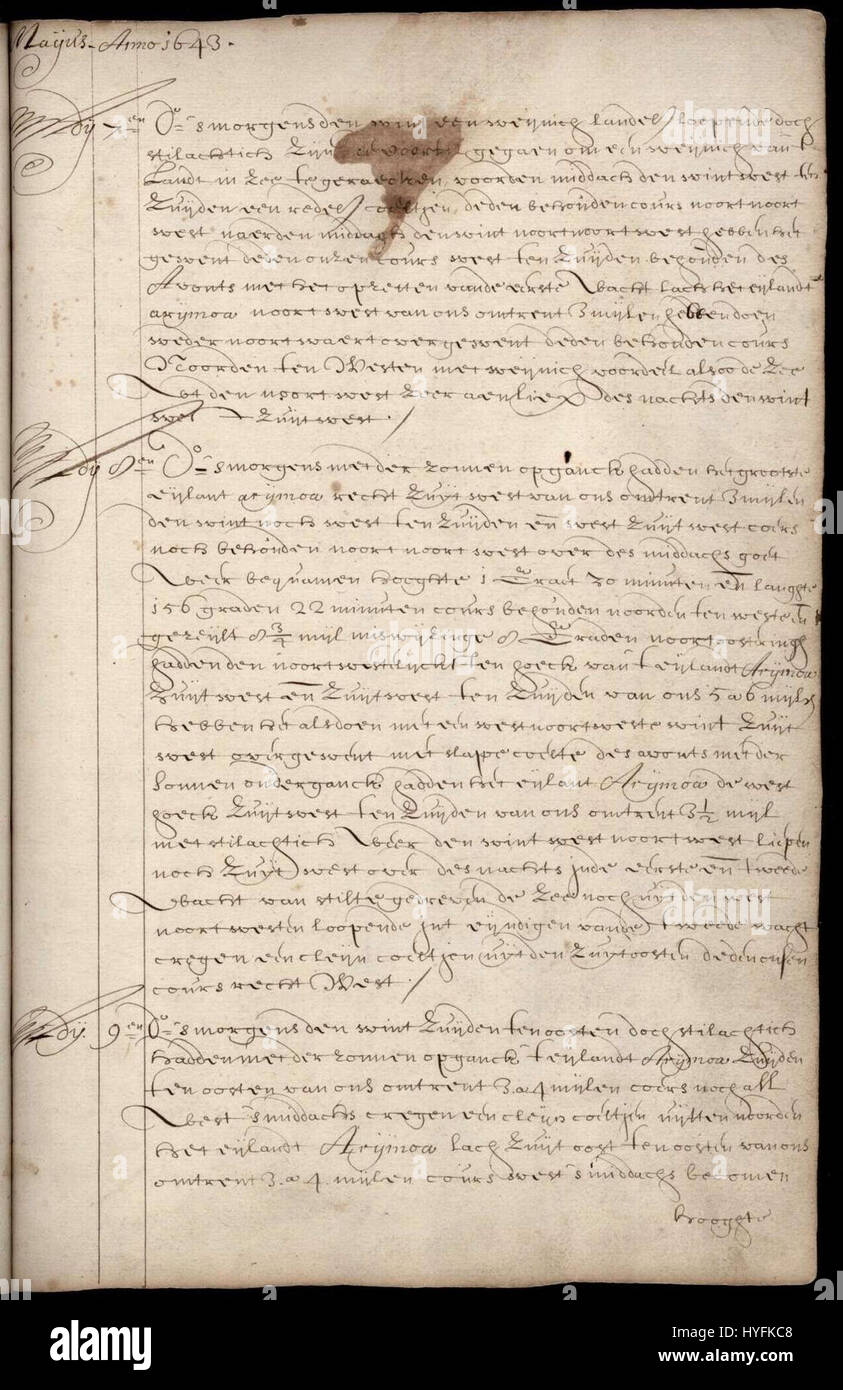 Mayus. Anno 1643.
dij 7en Do smorgens den wint een weijnich landel loopende doch
stilachtich zijn gegaen om een weijnich van't
Landt in Zee te geraecken, voorden middach den wint west ten
Zuijden een redel coeltjen, deden behouden cours noort noort
west naerden middach den wint noort noort west hebben het
gewent deden onzen cours west ten Zuijden behouden des
Avonts met het opzetten vande eerste Wacht lach het eijlandt
arijmoa noort west van ons omtrent 3 mijlen hebben doen
weder noortwaert overgewent deden behouden cours
Noorden ten Westen met weijnich voordeel alsoo de Zee
Uijt den noort west zeer aenliep des nachts den wint
west Zuijt west /
dij 8en Do smorgens met der zonnen opganck hadden het grootste
eijlant arijmoa recht Zuijt west van ons omtrent 3 mijlen
den wint noch west ten Zuijden en west Zuijt west cours
noch behouden noort noort west over des middachs goet
Weer bequamen hooghte 1 Graet 30 minuten en langhte
156 graden 22 minuten cours behouden noorden ten westen en
gezeijlt 8 3/4 mijl miswijsinge 8 Graden noortoostringh
hadden den noortwestelijcksten hoeck van't eijlandt Arijmoa
Zuijt west en Zuijtwest ten Zuijden van ons 5 a 6 mijlen
hebben het alsdoen met een westnoortweste wint Zuijt
west overgewent met slappe coelte des avonts met der
Sonnen onderganck hadden het eijlant Arijmoa de west
hoeck Zuijtwest ten Zuijden van ons omtrent 3 1/2 mijl
met stilachtich Weer den wint west noort west liepen
noch Zuijt west over des nachts inde eerste en tweede
Wacht van stilte gedreven de Zee noch uijt den west
noort westen loopende int eijndigen vande tweede wacht
cregen een cleijn coeltjen uijt den Zuijtoosten deden onsen
cours recht West /
dij. 9en Do smorgens den wint Zuijden ten oosten doch stilachtich
hadden met der zonnen opganck 't eijlandt Arijmoa Zuijden
ten oosten van ons omtrent 3 a 4 mijlen cours noch all
West smiddachs cregen een cleijn coeltjen uijtten noorden
het eijlandt Arijmoa lach Zuijt oost ten oosten van ons
omtrent 3 a 4 mijlen cours west smiddachs becomen
hooghte
alamy
a
alamy stock photo
HYFKC8
www.alamy.com